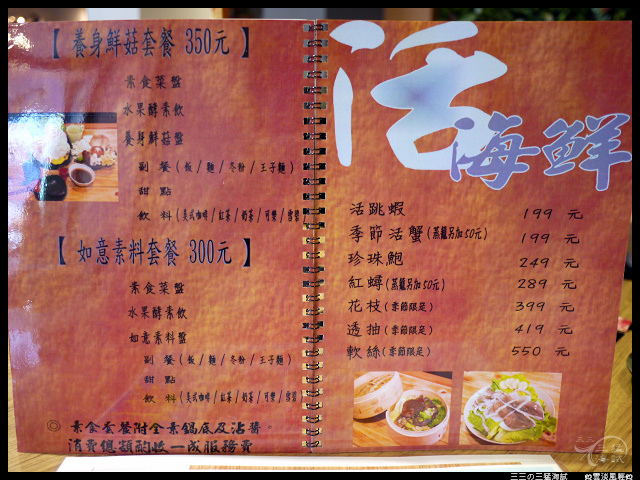 【 養身鮮菇套餐 350元 】
素食菜盤
水果酵素飲
養身鮮菇盤
副 餐 ( 飯 / 麵 / 冬粉 / 王子麵 )
甜 點
飲 料 ( 美式咖啡 / 紅茶 / 奶茶 / 可樂 / 雪碧
【 如意素料套餐 300元 】
素食菜盤
水果酵素飲
如意素料盤
副 餐 ( 飯 / 麵 / 冬粉 / 王子麵 )
甜 點
飲 料 ( 美式咖啡 / 紅茶 / 奶茶 / 可樂 / 雪碧
◎ 素食套餐附全素鍋底及沾醬
消費總額酌收一成服務費
活
海鮮
活跳蝦 199 元
季節活蟹(蒸籠另加50元) 199 元
珍珠鮑 249 元
紅蟳(蒸籠另加50元) 289 元
花枝(季節限定) 399 元
透抽(季節限定) 419 元
軟絲(季節限定) 550 元
三三の三猛海賊
雲淡風輕